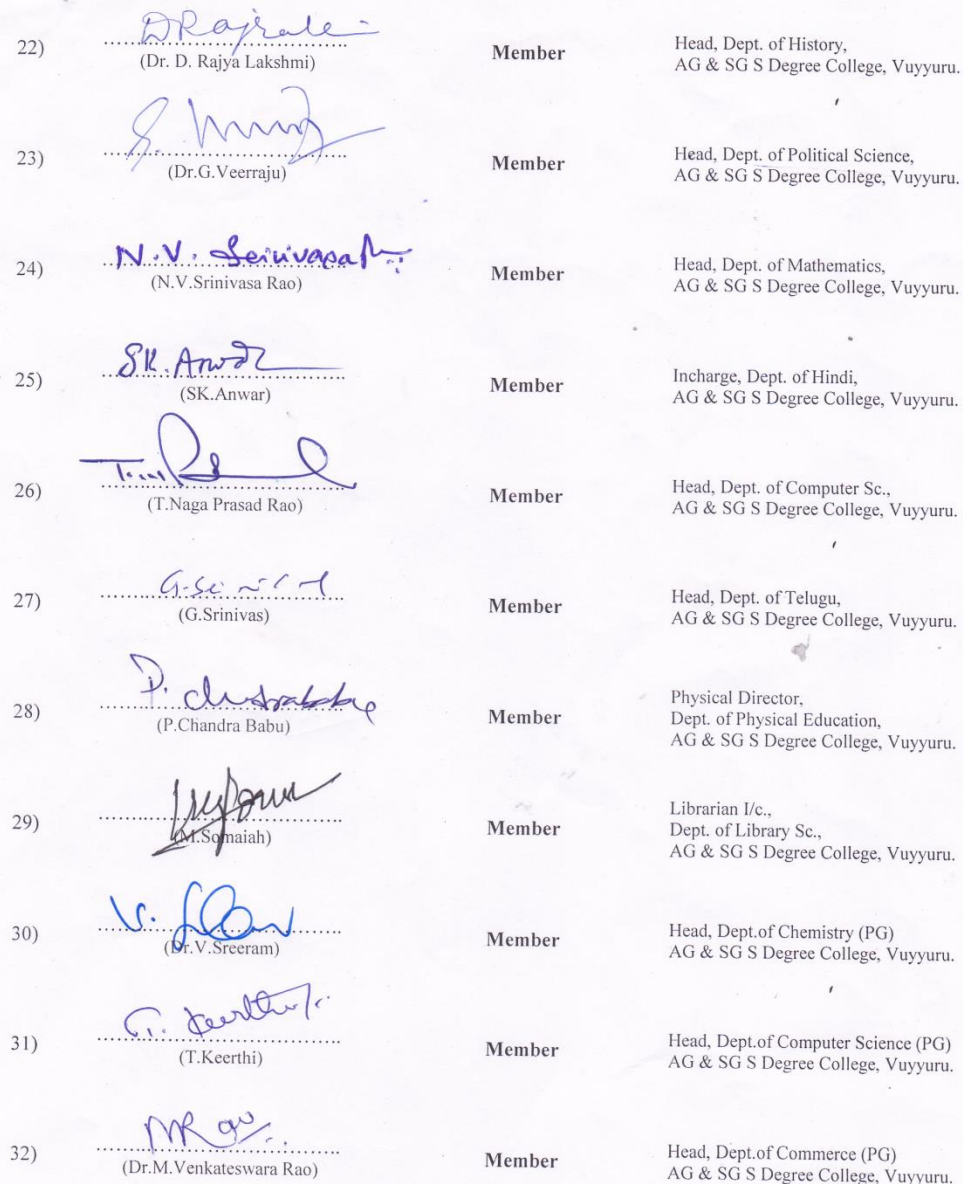 22) D Rajyala
(Dr. D. Rajya Lakshmi) Member Head, Dept. of History,
AG & SG S Degree College, Vuyyuru.
23) G.
(Dr.G.Veerraju) Member Head, Dept. of Political Science,
AG & SG S Degree College, Vuyyuru.
24) N.V. Srinivasa
(N.V.Srinivasa Rao) Member Head, Dept. of Mathematics,
AG & SG S Degree College, Vuyyuru.
25) SK. Anwar
(SK.Anwar) Member Incharge, Dept. of Hindi,
AG & SG S Degree College, Vuyyuru.
26)
(T.Naga Prasad Rao) Member Head, Dept. of Computer Sc.,
AG & SG S Degree College, Vuyyuru.
27) G.
(G.Srinivas) Member Head, Dept. of Telugu,
AG & SG S Degree College, Vuyyuru.
28) P. Chandrababu
(P.Chandra Babu) Member Physical Director,
Dept. of Physical Education,
AG & SG S Degree College, Vuyyuru.
29)
(M.Somaiah) Member Librarian I/c.,
Dept. of Library Sc.,
AG & SG S Degree College, Vuyyuru.
30) V.
(Dr.V.Sreeram) Member Head, Dept.of Chemistry (PG)
AG & SG S Degree College, Vuyyuru.
31) T. Keerthi
(T.Keerthi) Member Head, Dept.of Computer Science (PG)
AG & SG S Degree College, Vuyyuru.
32)
(Dr.M.Venkateswara Rao) Member Head, Dept.of Commerce (PG)
AG & SG S Degree College, Vuyyuru.